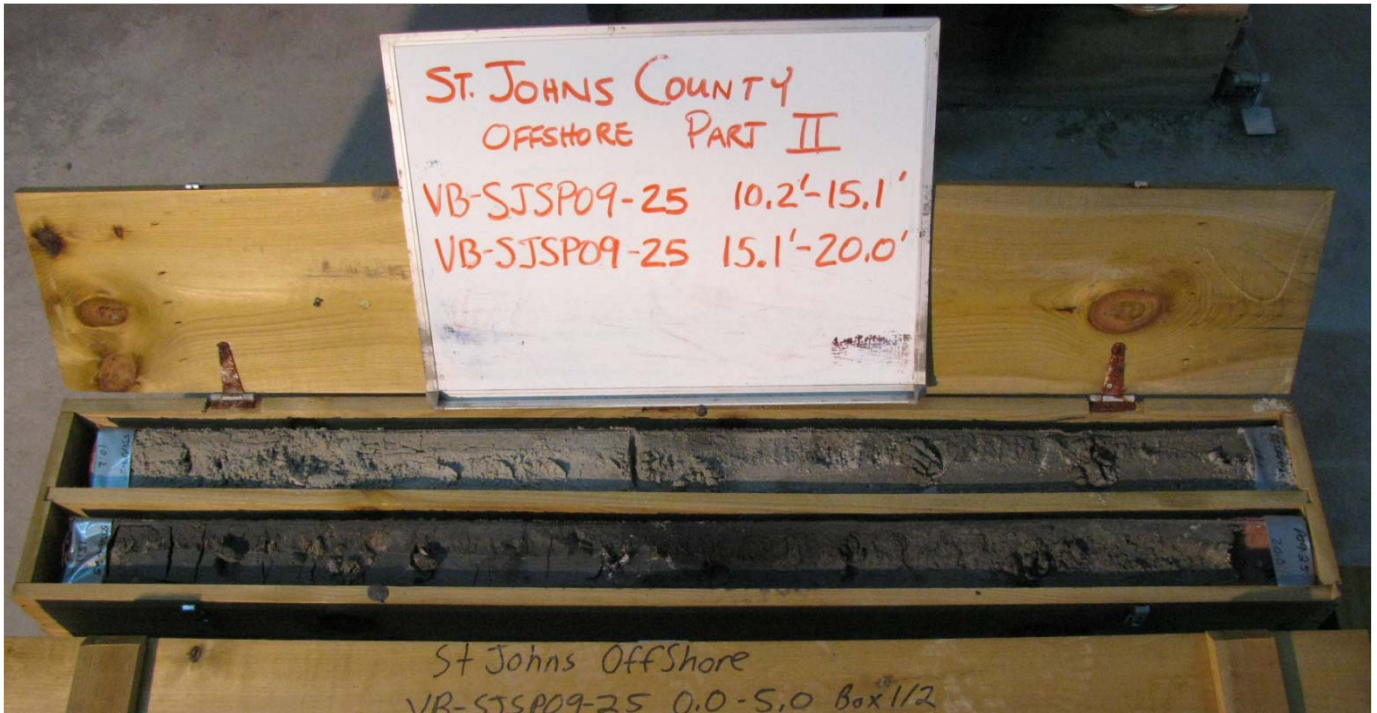 ST. JOHNS COUNTY
OFFSHORE PART II
VB-SJSP09-25 10.2'-15.1'
VB-SJSP09-25 15.1'-20.0'
10.2
20.0
St Johns OffShore
VB-SJSP09-25 0.0-5.0 Box 1/2